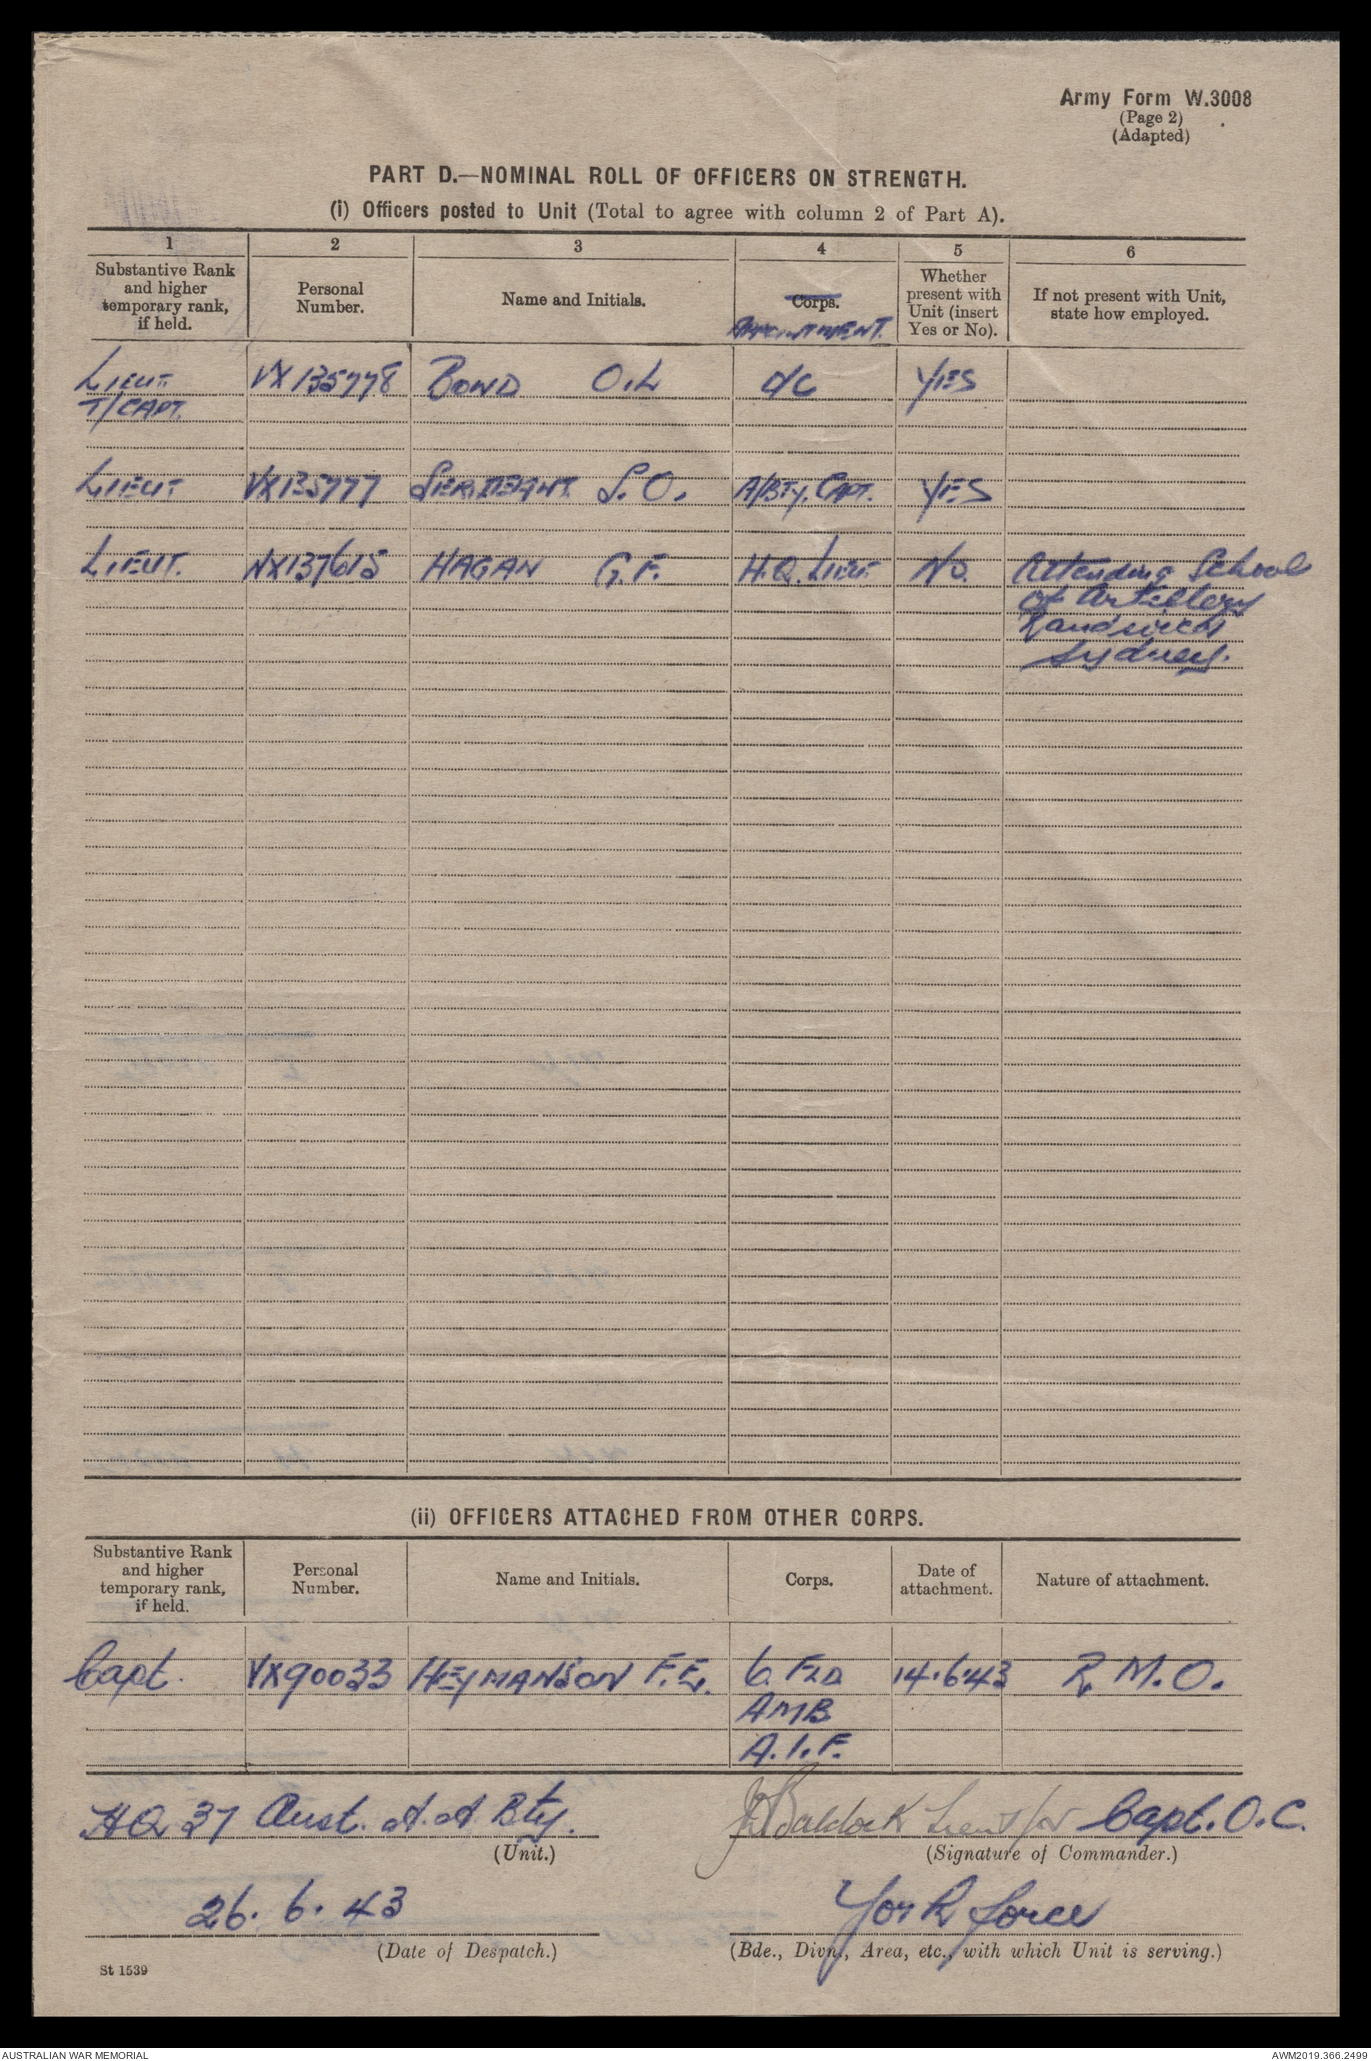 Army Form W.3008
(Page 2)
(Adapted)
PART D.—NOMINAL ROLL OF OFFICERS ON STRENGTH.
(i) Officers posted to Unit (Total to agree with column 2 of Part A).
1 2 3 4 5 6
Substantive Rank and higher temporary rank, if held. Personal Number. Name and Initials. Corps. APPOINTMENT. Whether present with Unit (insert Yes or No). If not present with Unit, state how employed.
LIEUT VX135778 BOND O.L O/C YES
T/CAPT.
LIEUT VX135777 S.O. A/BTY. CAPT. YES
LIEUT. NX137615 HAGAN G.F. H.Q. LIEUT No. Attending School
of Artillery
Randwick
Sydney.
(ii) OFFICERS ATTACHED FROM OTHER CORPS.
Substantive Rank and higher temporary rank, if held. Personal Number. Name and Initials. Corps. Date of attachment. Nature of attachment.
Capt. VX90033 HEYMANSON F.E. 6 FLD 14.6.43 R.M.O.
AMB
A.I.F.
HQ 37 Aust. A.A Bty. Baldock Lieut for Capt. O.C.
(Unit.) (Signature of Commander.)
26. 6. 43 York force
(Date of Despatch.) (Bde., Divn., Area, etc., with which Unit is serving.)
St 1539
AUSTRALIAN WAR MEMORIAL AWM2019.366.2499